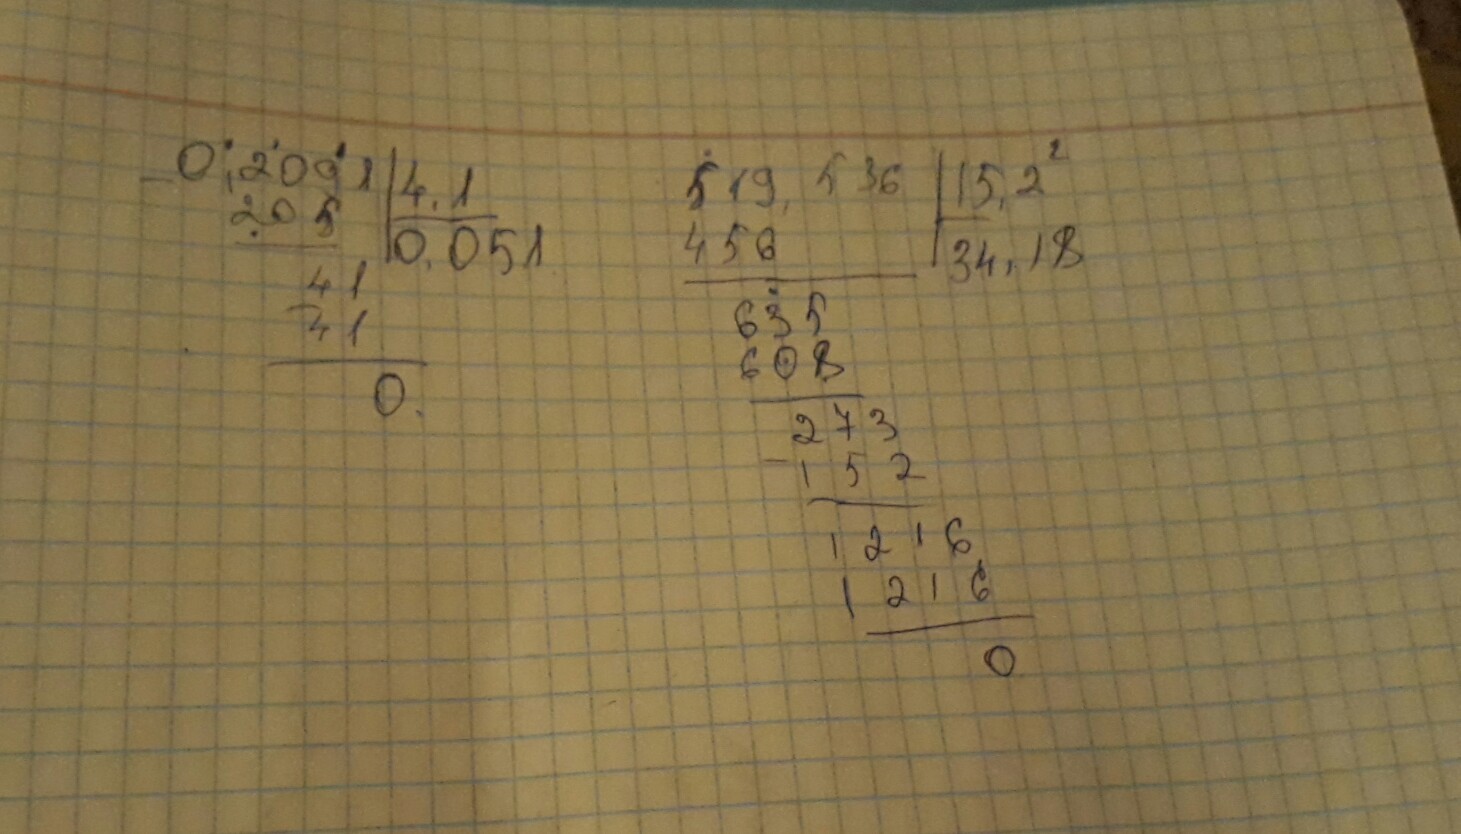 0,2091 4,1
205 0,051
41
41
0
519,536 15,2
456 34,18
635
608
273
152
1216
1216
0